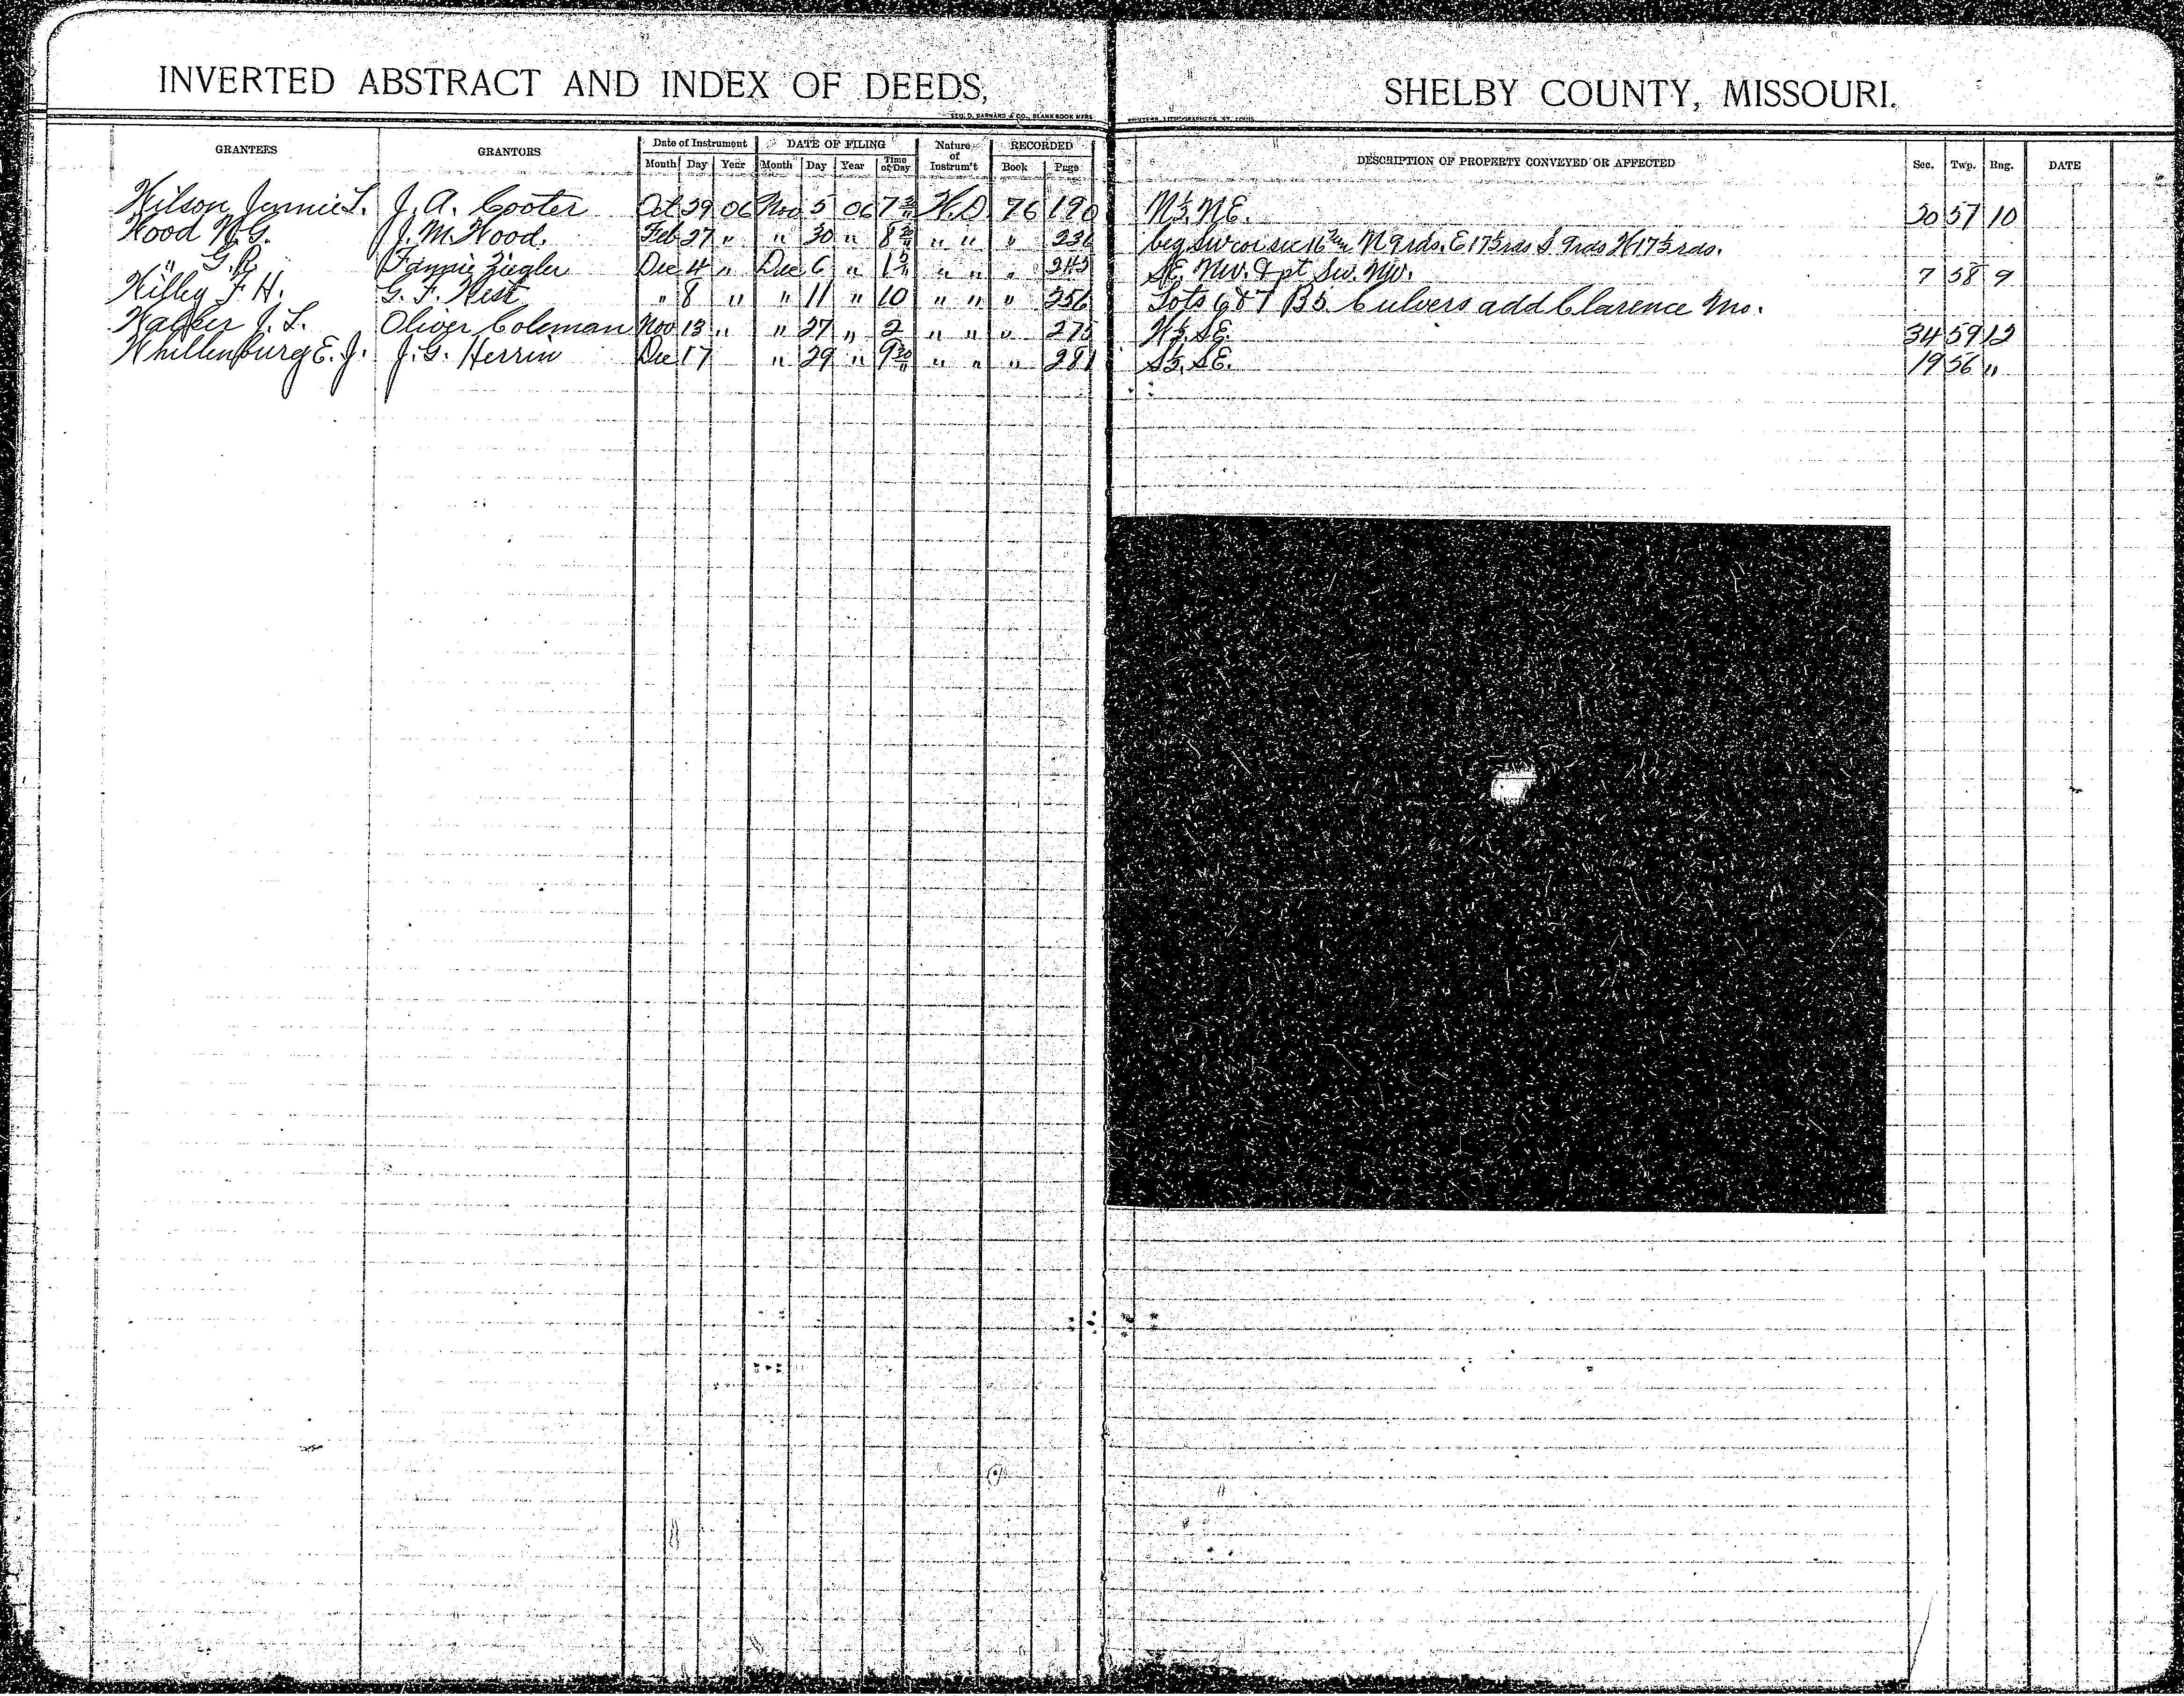 INVERTED ABSTRACT AND INDEX OF DEEDS, SHELBY COUNTY, MISSOURI.
GEO. D. BARNARD & CO., BLANK BOOK MFRS. PRINTERS, LITHOGRAPHERS, ST. LOUIS
GRANTEES GRANTORS Date of Instrument DATE OF FILING Nature of Instrum't RECORDED DESCRIPTION OF PROPERTY CONVEYED OR AFFECTED Sec. Twp. Rng. DATE
Month Day Year Month Day Year Time of Day Book Page
Wilson Jennie L. J. A. Cooter Oct 29 06 Nov 5 06 W.D 76 190 N½ NE. 30 57 10
Wood N.G. J. M. Wood. Feb 27 " " 30 " " " " 236 beg Sw cor sec 16 N 9 rds. E 17½ rds S 9 rds W 17½ rds.
" G.R. Fannie Ziegler Dec 4 " Dec 6 " " " " 245 SE. Nw. & pt Sw. Nw. 7 58 9
Wilby F. H. G. F. West " 8 " " 11 " 10 " " " 256 Lots 6 & 7 B5 Culvers add Clarence Mo.
J. L. Oliver Coleman Nov 13 " " 27 " 2 " " " 275 W½ SE. 34 59 12
Whillenburg E. J. J. G. Herrin Dec 17 " 29 " 9 30 " " " 281 S½ SE. 19 56 "